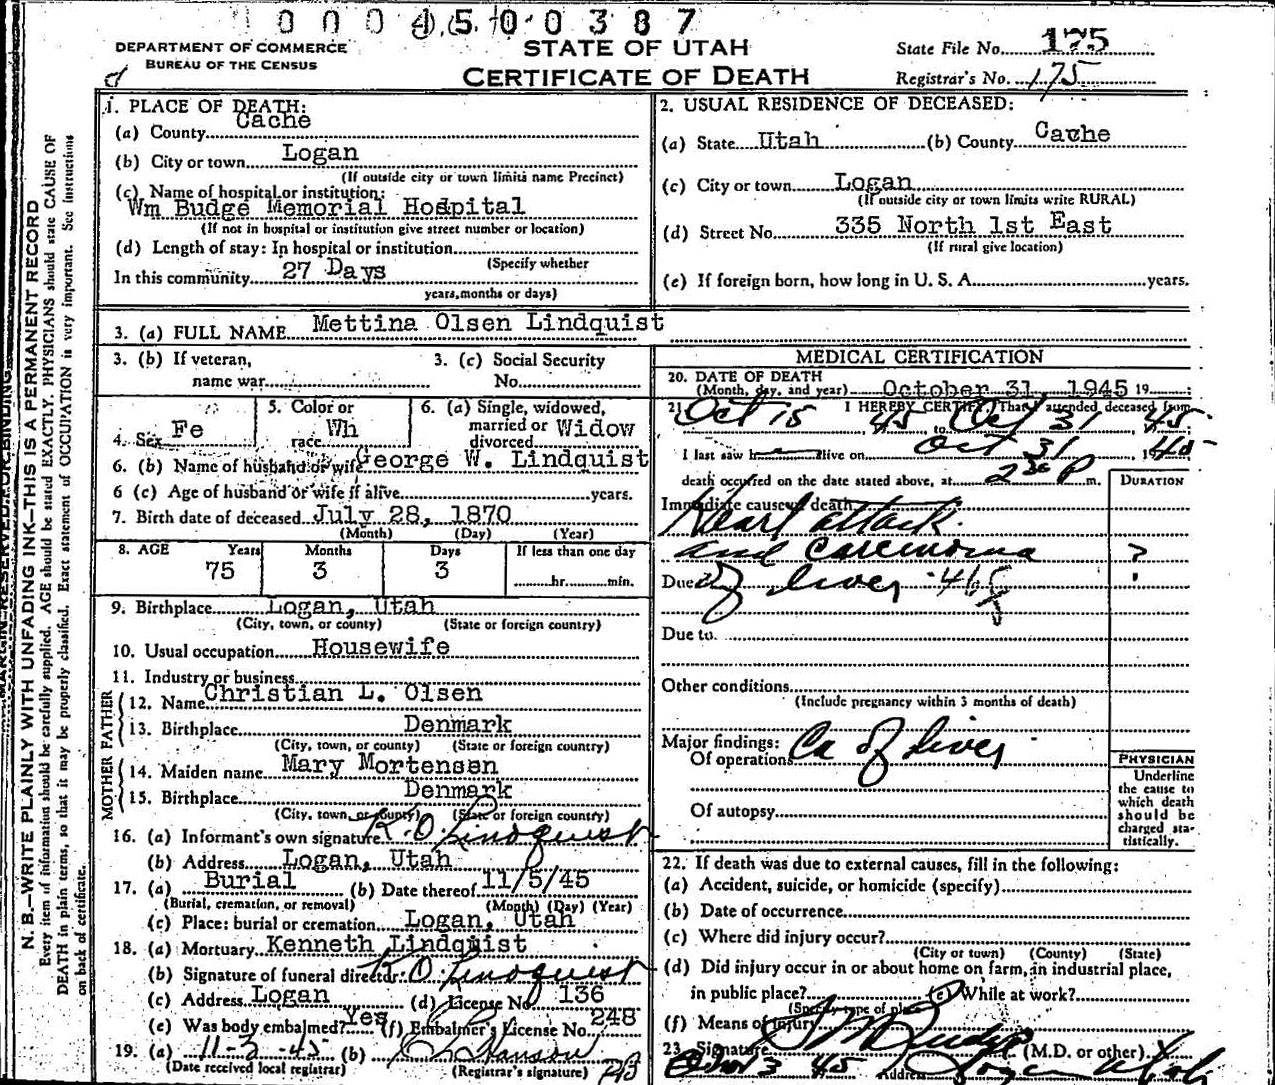 0 0 0 4 5 0 0 3 8 7
DEPARTMENT OF COMMERCE
BUREAU OF THE CENSUS
STATE OF UTAH
CERTIFICATE OF DEATH
State File No. 175
Registrar's No. 175
N. B.—WRITE PLAINLY WITH UNFADING INK—THIS IS A PERMANENT RECORD
Every item of information should be carefully supplied. AGE should be stated EXACTLY. PHYSICIANS should state CAUSE OF
DEATH in plain terms, so that it may be properly classified. Exact statement of OCCUPATION is very important. See instructions
on back of certificate.
MARGIN RESERVED FOR BINDING
1. PLACE OF DEATH:
(a) County Cache
(b) City or town Logan
(If outside city or town limits name Precinct)
(c) Name of hospital or institution:
Wm Budge Memorial Hospital
(If not in hospital or institution give street number or location)
(d) Length of stay: In hospital or institution
(Specify whether
In this community 27 Days
years, months or days)
2. USUAL RESIDENCE OF DECEASED:
(a) State Utah (b) County Cache
(c) City or town Logan
(If outside city or town limits write RURAL)
(d) Street No. 335 North 1st East
(If rural give location)
(e) If foreign born, how long in U. S. A. years.
3. (a) FULL NAME Mettina Olsen Lindquist
3. (b) If veteran,
name war
3. (c) Social Security
No.
4. Sex Fe
5. Color or
race Wh
6. (a) Single, widowed,
married or
divorced Widow
6. (b) Name of husband or wife George W. Lindquist
6 (c) Age of husband or wife if alive years.
7. Birth date of deceased July 28, 1870
(Month) (Day) (Year)
8. AGE Years Months Days If less than one day
75 3 3 hr. min.
9. Birthplace Logan, Utah
(City, town, or county) (State or foreign country)
10. Usual occupation Housewife
11. Industry or business
FATHER
12. Name Christian L. Olsen
13. Birthplace Denmark
(City, town, or county) (State or foreign country)
MOTHER
14. Maiden name Mary Mortensen
15. Birthplace Denmark
(City, town, or county) (State or foreign country)
16. (a) Informant's own signature K. O. Lindquist
(b) Address Logan, Utah
17. (a) Burial (b) Date thereof 11/5/45
(Burial, cremation, or removal) (Month) (Day) (Year)
(c) Place: burial or cremation Logan, Utah
18. (a) Mortuary Kenneth Lindquist
(b) Signature of funeral director: K. O. Lindquist
(c) Address Logan (d) License No. 136
(e) Was body embalmed? Yes (f) Embalmer's License No. 248
19. (a) 11-3-45 (b) Hanson
(Date received local registrar) (Registrar's signature)
MEDICAL CERTIFICATION
20. DATE OF DEATH
(Month, day, and year) October 31 1945 19
21. I HEREBY CERTIFY, That I attended deceased from
Oct 15, 45 to Oct 31, 45
I last saw h alive on Oct 31, 1945
death occurred on the date stated above, at 2 30 P m.
DURATION
Immediate cause of death
Heart attack
and carcinoma ?
Due of liver
Due to
Other conditions
(Include pregnancy within 3 months of death)
Major findings:
Of operations Ca of liver
Of autopsy
PHYSICIAN
Underline
the cause to
which death
should be
charged sta-
tistically.
22. If death was due to external causes, fill in the following:
(a) Accident, suicide, or homicide (specify)
(b) Date of occurrence
(c) Where did injury occur?
(City or town) (County) (State)
(d) Did injury occur in or about home on farm, in industrial place,
in public place? (e) While at work?
(Specify type of place)
(f) Means of injury
23 Signature Budge (M.D. or other)
Nov 3 45 Address Logan Utah